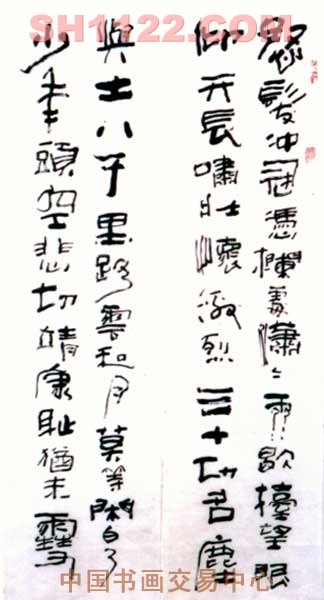 SH1122.COM
怒髮沖冠憑欄處瀟〻雨歇擡望眼
仰天長嘯壯懷激烈三十功名塵
與土八千里路雲和月莫等閑白了
少年頭空悲切靖康耻猶未雪
中国书画交易中心